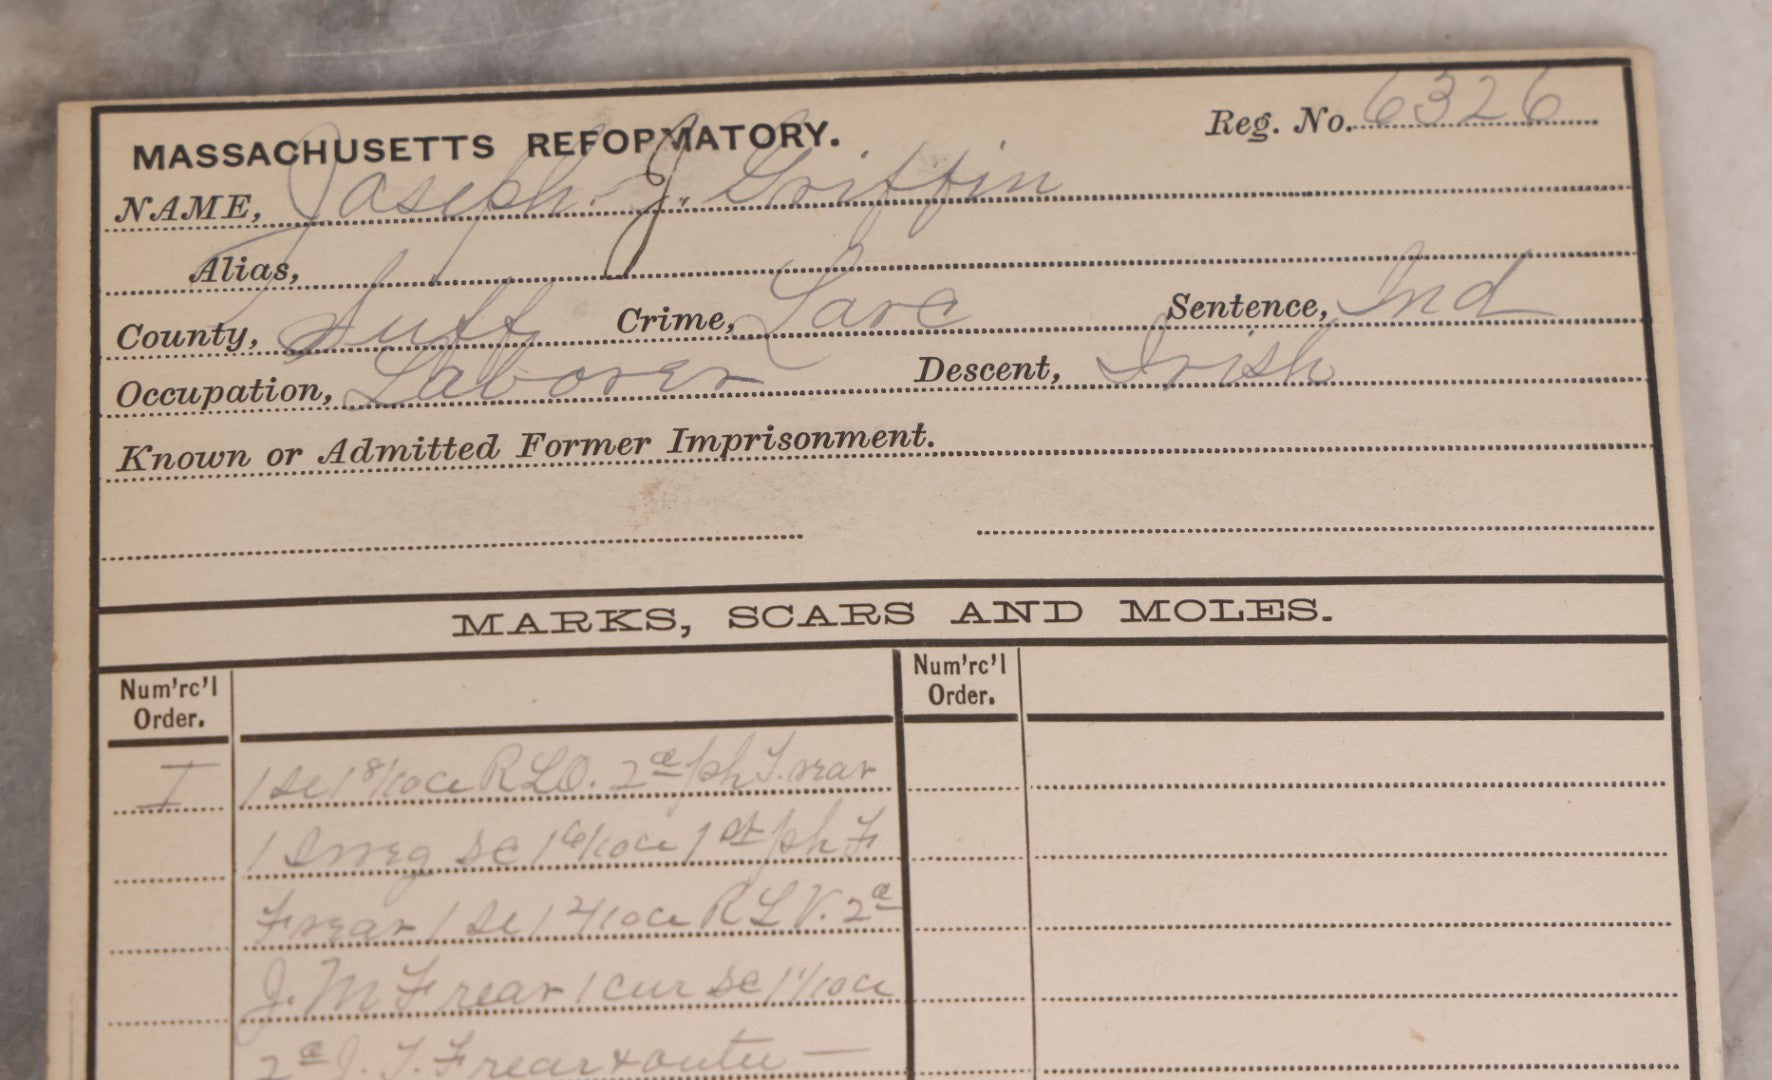 MASSACHUSETTS REFORMATORY. Reg. No. 6326
NAME, Joseph J. Griffin
Alias,
County, Suff Crime, Larc Sentence, Ind
Occupation, Laborer Descent, Irish
Known or Admitted Former Imprisonment.
MARKS, SCARS AND MOLES.
Num'rc'l Order. Num'rc'l Order.
I 1 sc 1 8/10 ce R L O. 2d ph T. rear
1 Irreg sc 1 6/10 ce 1st ph F
F rear 1 sc 1 2/10 ce R L V. 2d
J. M F rear 1 cur sc 1 1/10 ce
2d J. T. F rear & outer —